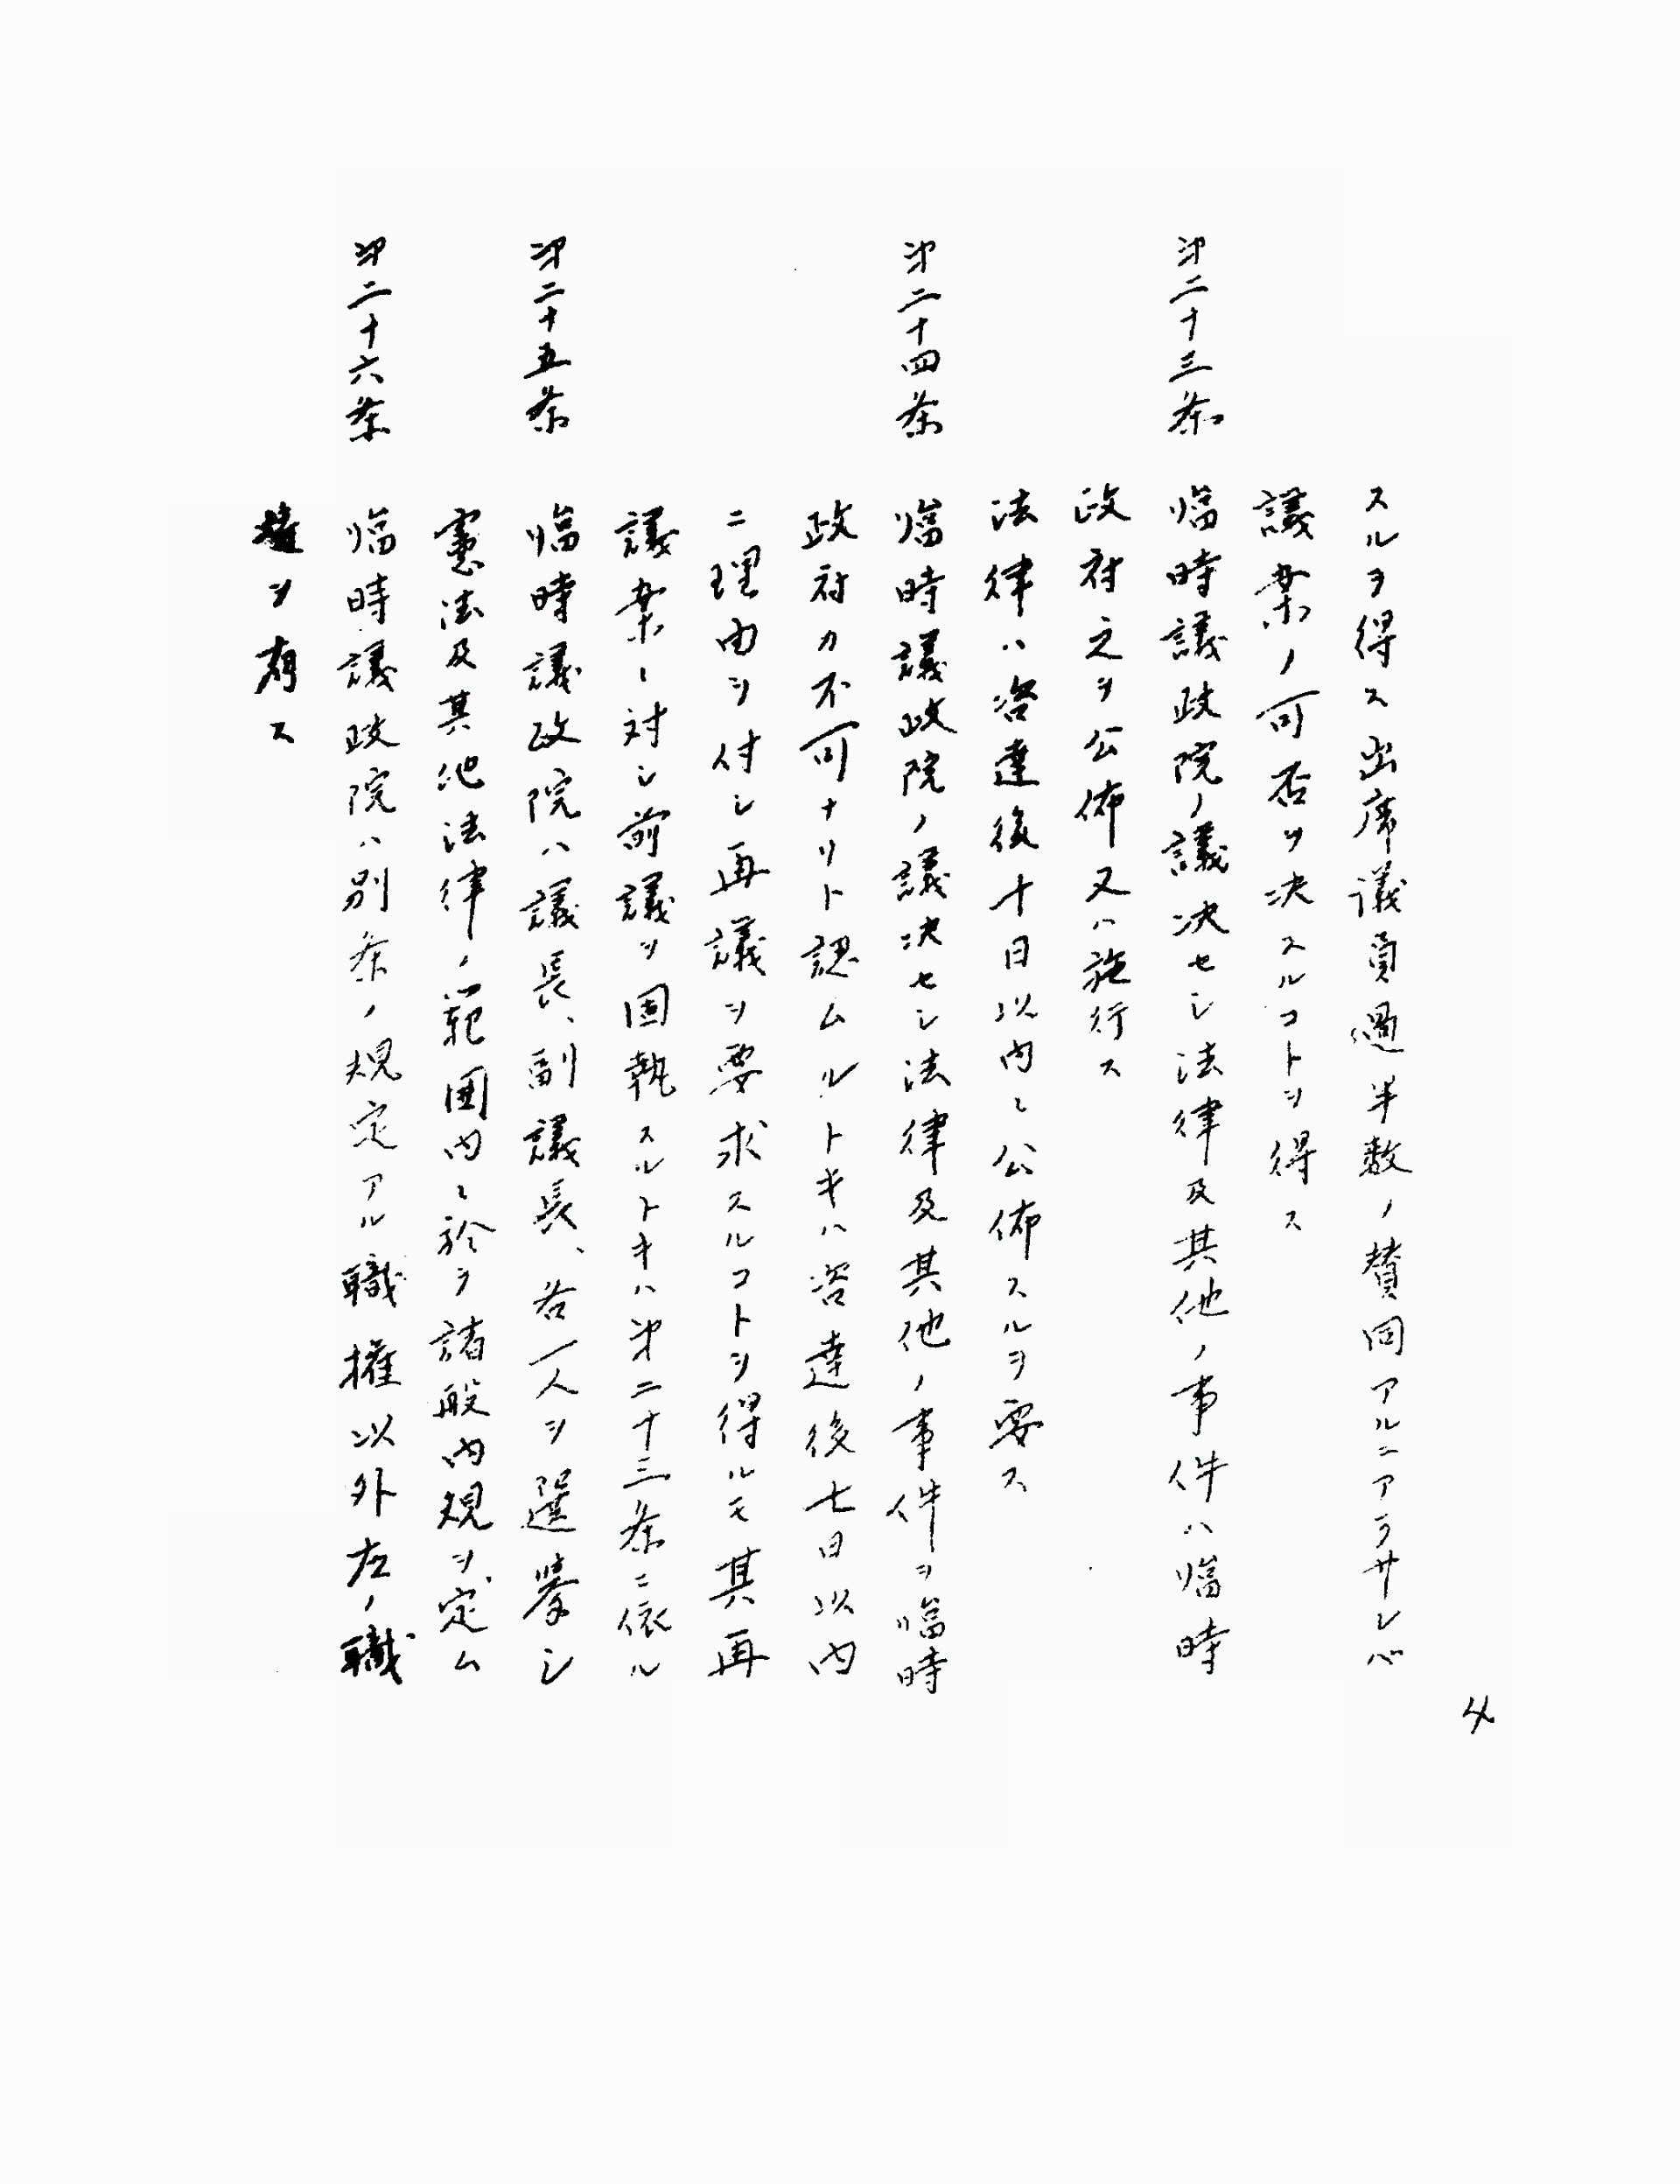 スルヲ得ス出席議員過半数ノ賛同アルニアラサレバ
議案ノ可否ヲ決スルコトヲ得ス
第二十三条 臨時議政院ノ議决セシ法律及其他ノ事件ハ臨時
政府之ヲ公佈又ハ施行ス
法律ハ咨達後十日以内ニ公佈スルヲ要ス
第二十四条 臨時議政院ノ議决セシ法律及其他ノ事件ヲ臨時
政府カ不可ナリト認ムルトキハ咨達後七日以内
ニ理由ヲ付シ再議ヲ要求スルコトヲ得ルモ其再
議案ニ対シ前議ヲ固執スルトキハ第二十三条ニ依ル
第二十五条 臨時議政院ハ議長、副議長、各一人ヲ選挙シ
憲法及其他法律ノ範囲内ニ於テ諸般内規ヲ定ム
第二十六条 臨時議政院ハ別条ノ規定アル職権以外左ノ職
権ヲ有ス
4